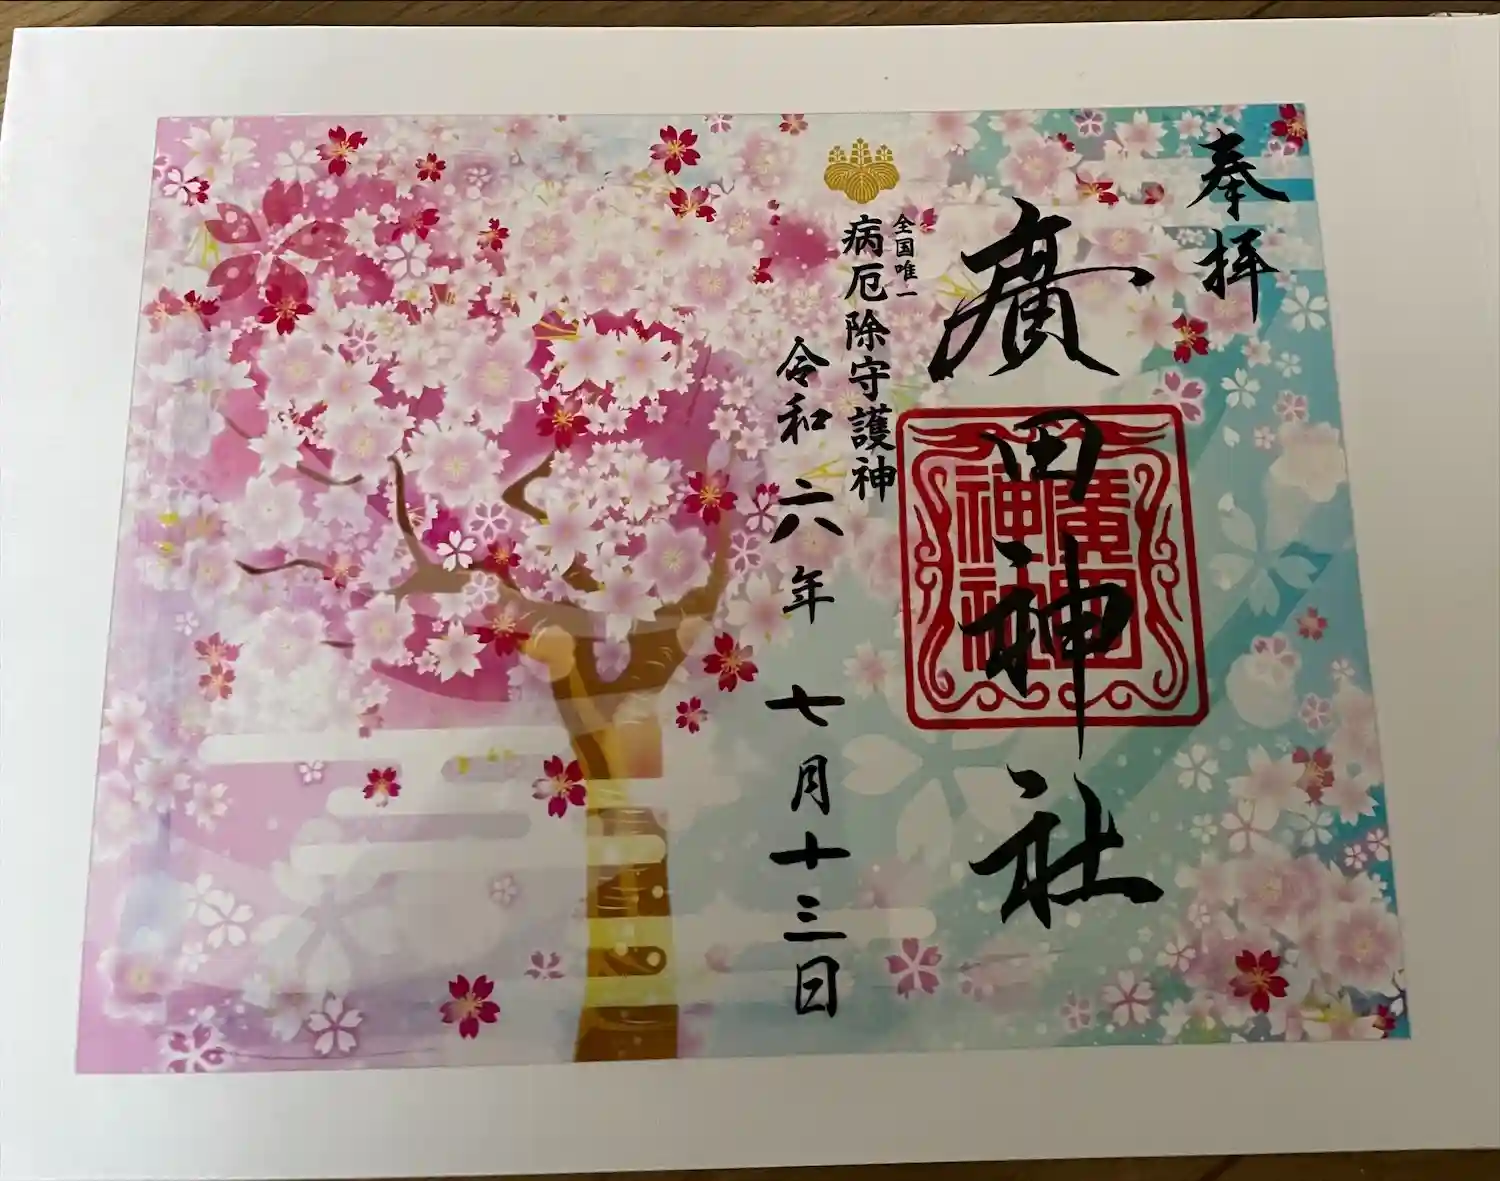 奉拝
廣田神社
廣田
神社
全国唯一
病厄除守護神
令和六年 七月十三日